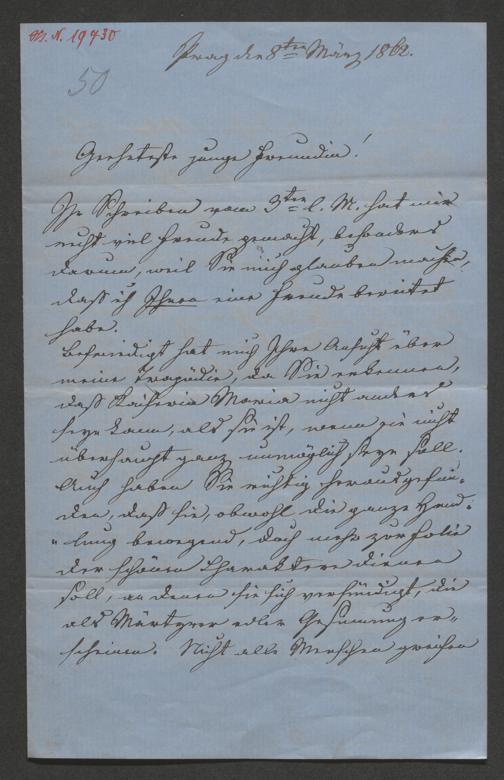 H. N. 19430
50
Prag den 8ten März 1862.
Geehrteste junge Freundin!
Ihr Schreiben vom 3ten l. M. hat mir
recht viel Freude gemacht, besonders
darum, weil Sie mich glauben machen,
daß ich Ihnen eine Freude bereitet
habe.
Befriedigt hat mich Ihre Ansicht über
meine Tragödie, da Sie erkennen,
daß Kaiserin Maria nicht anders
seyn kann, als sie ist, wenn sie nicht
überhaupt ganz unmöglich seyn soll.
Auch haben Sie richtig herausgefun-
den, daß sie, obwohl die ganze Hand-
lung bewegend, doch mehr zur Folie
der schönen Charaktere dienen
soll, an denen sie sich versündigt, die
als Märtyrer edler Gesinnung er-
scheinen. Nicht alle Menschen greifen